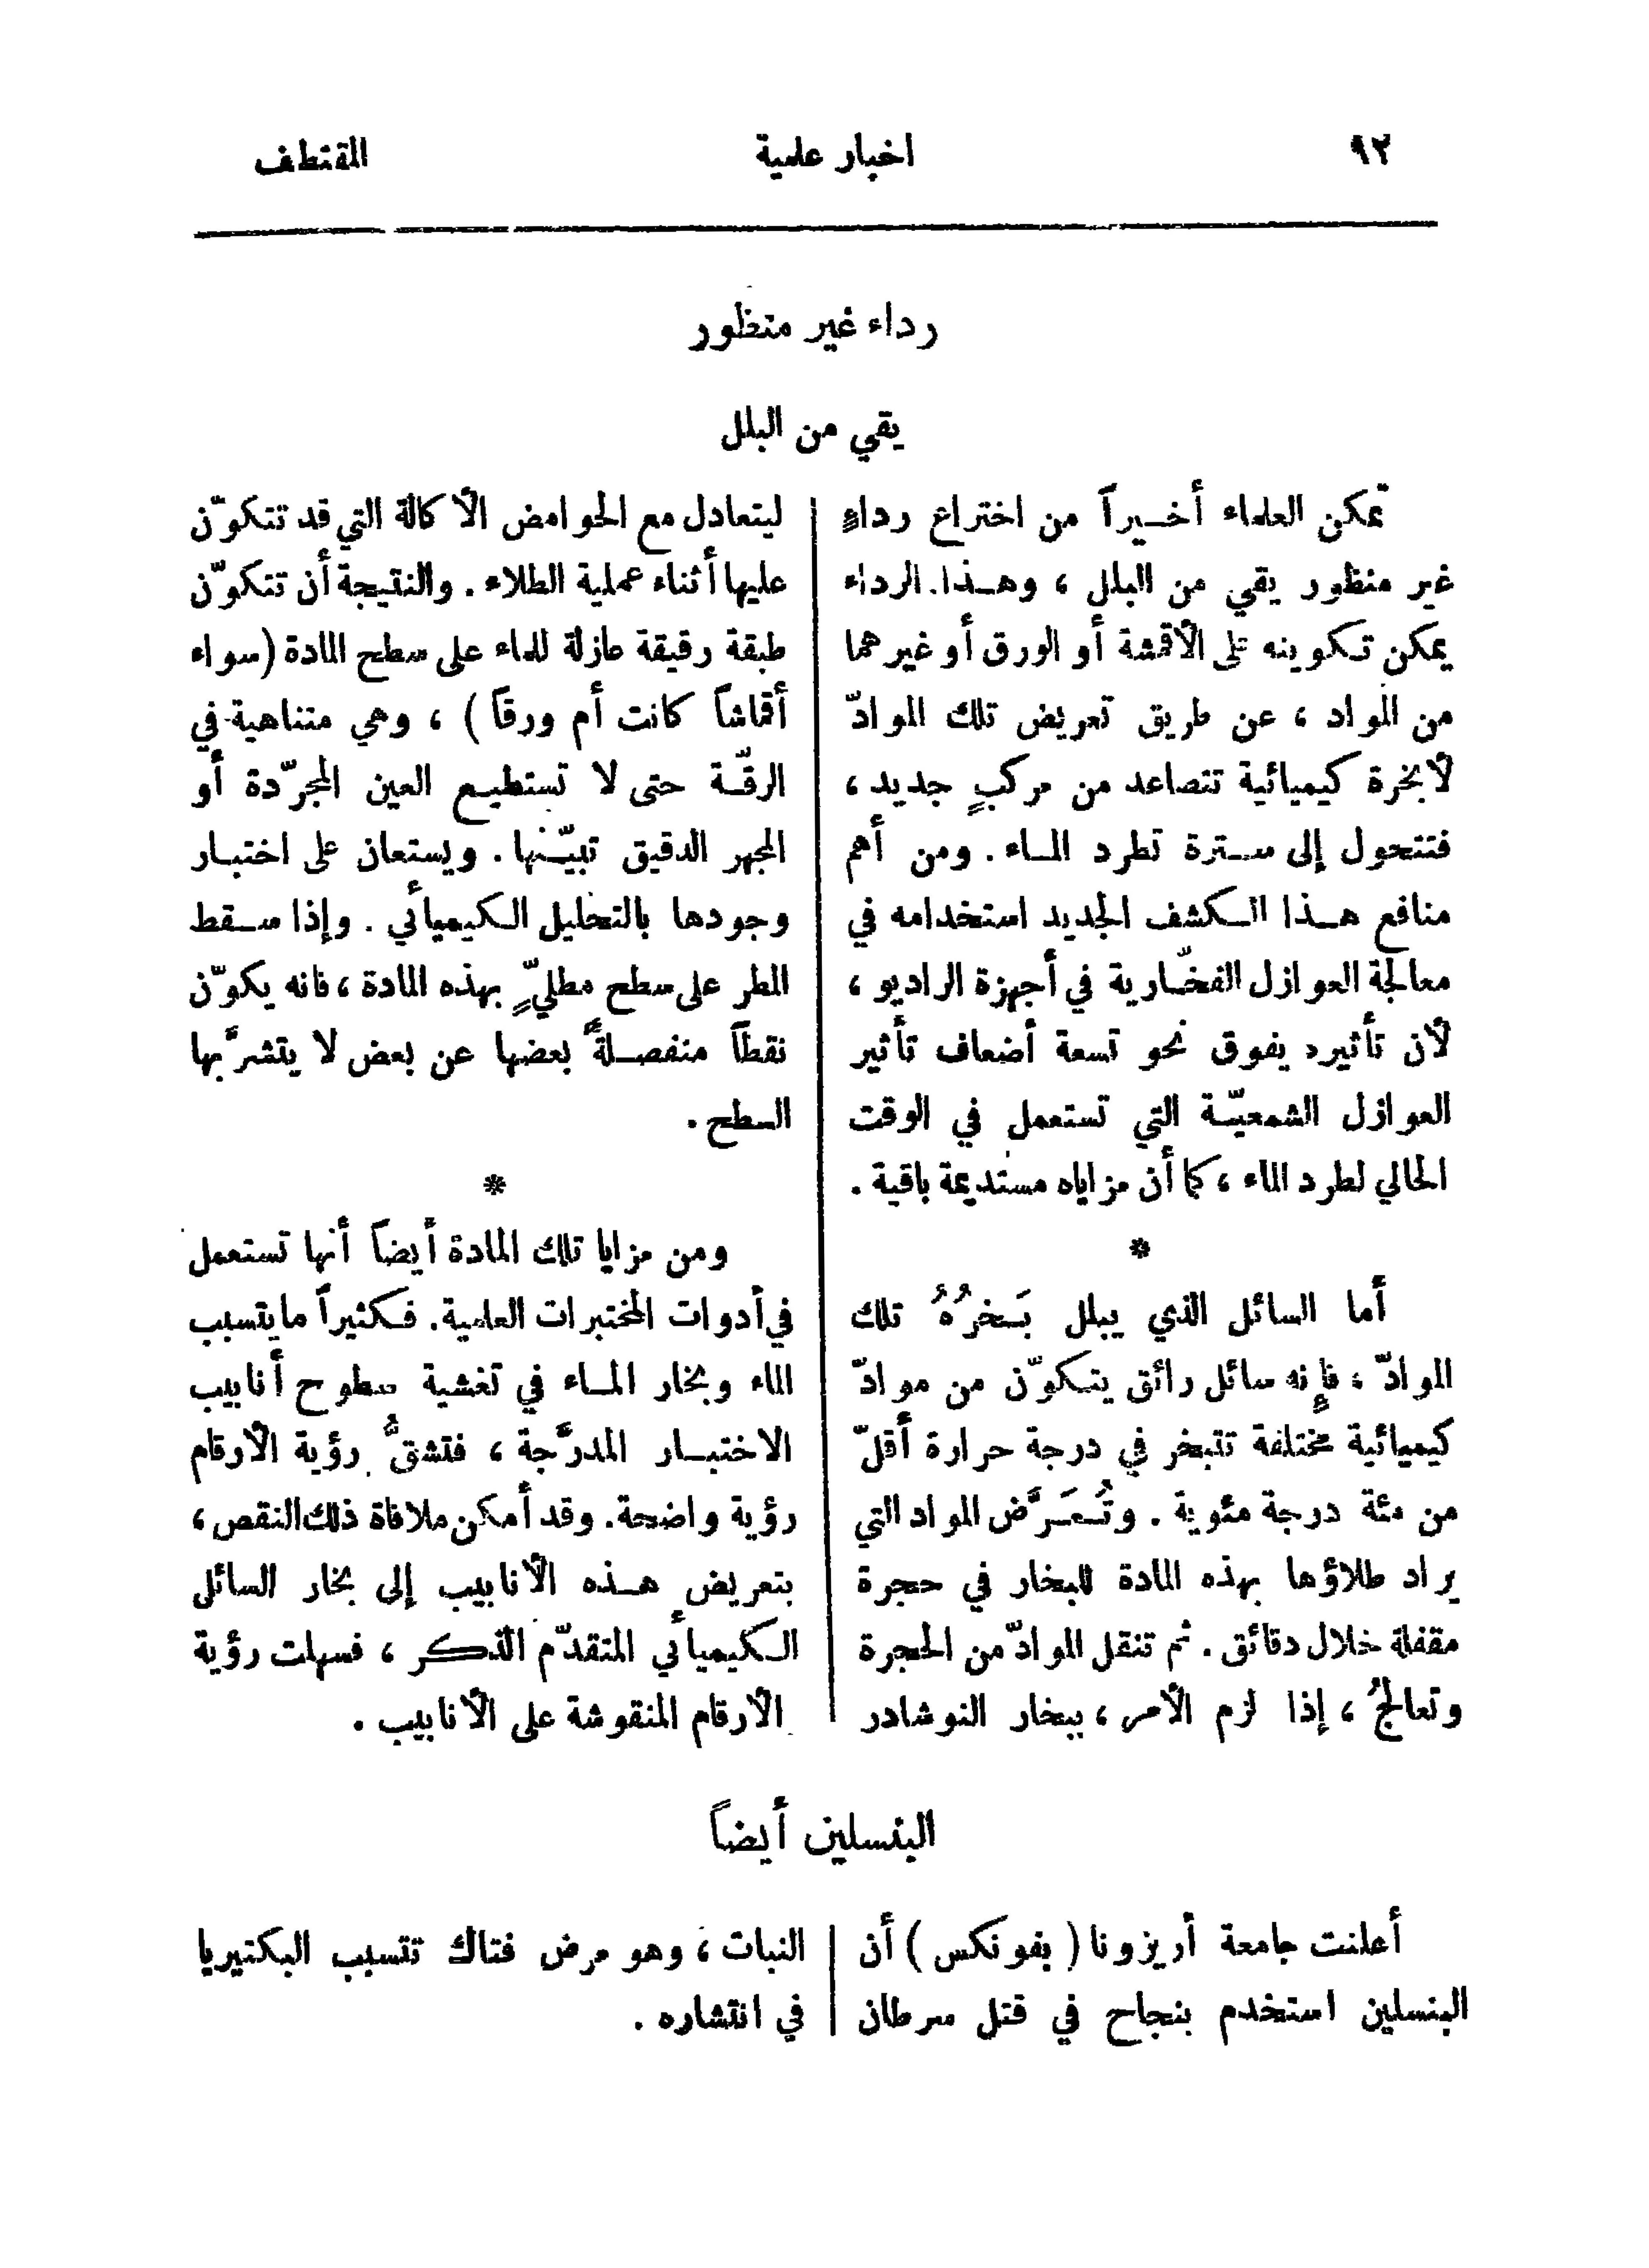 ٩٢
اخبار علمية
المقتطف
رداء غير منظور
يقي من البلل
تمكن العلماء أخيراً من اختراع رداءٍ
غير منظور يقي من البلل ، وهذا الرداء
يمكن تكوينه على الأقمشة أو الورق أو غيرهما
من المواد ، عن طريق تعريض تلك الموادّ
لأبخرة كيميائية تتصاعد من مركبٍ جديد ،
فتتحول إلى سترة تطرد الماء . ومن أهم
منافع هذا الكشف الجديد استخدامه في
معالجة العوازل الفخّارية في أجهزة الراديو ،
لأن تأثيره يفوق نحو تسعة أضعاف تأثير
العوازل الشمعيّة التي تستعمل في الوقت
الحالي لطرد الماء ، كما أن مزاياه مستديمة باقية .
*
أما السائل الذي يبلل بَخرُهُ تلك
الموادّ ، فإنه سائل رائق يتكوّن من موادّ
كيميائية مختلفة تتبخر في درجة حرارة أقلّ
من مئة درجة مئوية . وتُعَرَّض المواد التي
يراد طلاؤها بهذه المادة للبخار في حجرة
مقفلة خلال دقائق . ثم تنقل الموادّ من الحجرة
وتعالجُ ، إذا لزم الأمر ، ببخار النوشادر
ليتعادل مع الحوامض الأكالة التي قد تتكوّن
عليها أثناء عملية الطلاء . والنتيجة أن تتكوّن
طبقة رقيقة عازلة للماء على سطح المادة (سواء
أقماشاً كانت أم ورقاً ) ، وهي متناهية في
الرقّة حتى لا تستطيع العين المجرّدة أو
المجهر الدقيق تبيّنها . ويستعان على اختبار
وجودها بالتحليل الكيميأئي . وإذا سقط
المطر على سطح مطليّ بهذه المادة ، فانه يكوّن
نقطاً منفصلةً بعضها عن بعض لا يتشرَّبها
السطح .
*
ومن مزايا تلك المادة أيضاً أنها تستعمل
في أدوات المختبرات العلمية. فكثيراً ما يتسبب
الماء وبخار الماء في تغشية سطوح أنابيب
الاختبار المدرَّجة ، فتشقُّ رؤية الأرقام
رؤية واضحة. وقد أمكن ملافاة ذلك النقص ،
بتعريض هذه الأنابيب إلى بخار السائل
الكيميأئي المتقدّم الذكر ، فسهلت رؤية
الأرقام المنقوشة على الأنابيب .
البنسلين أيضاً
أعلنت جامعة أريزونا ( بفونكس ) أن
البنسلين استخدم بنجاح في قتل سرطان
النبات ، وهو مرض فتاك تتسبب البكتيريا
في انتشاره .